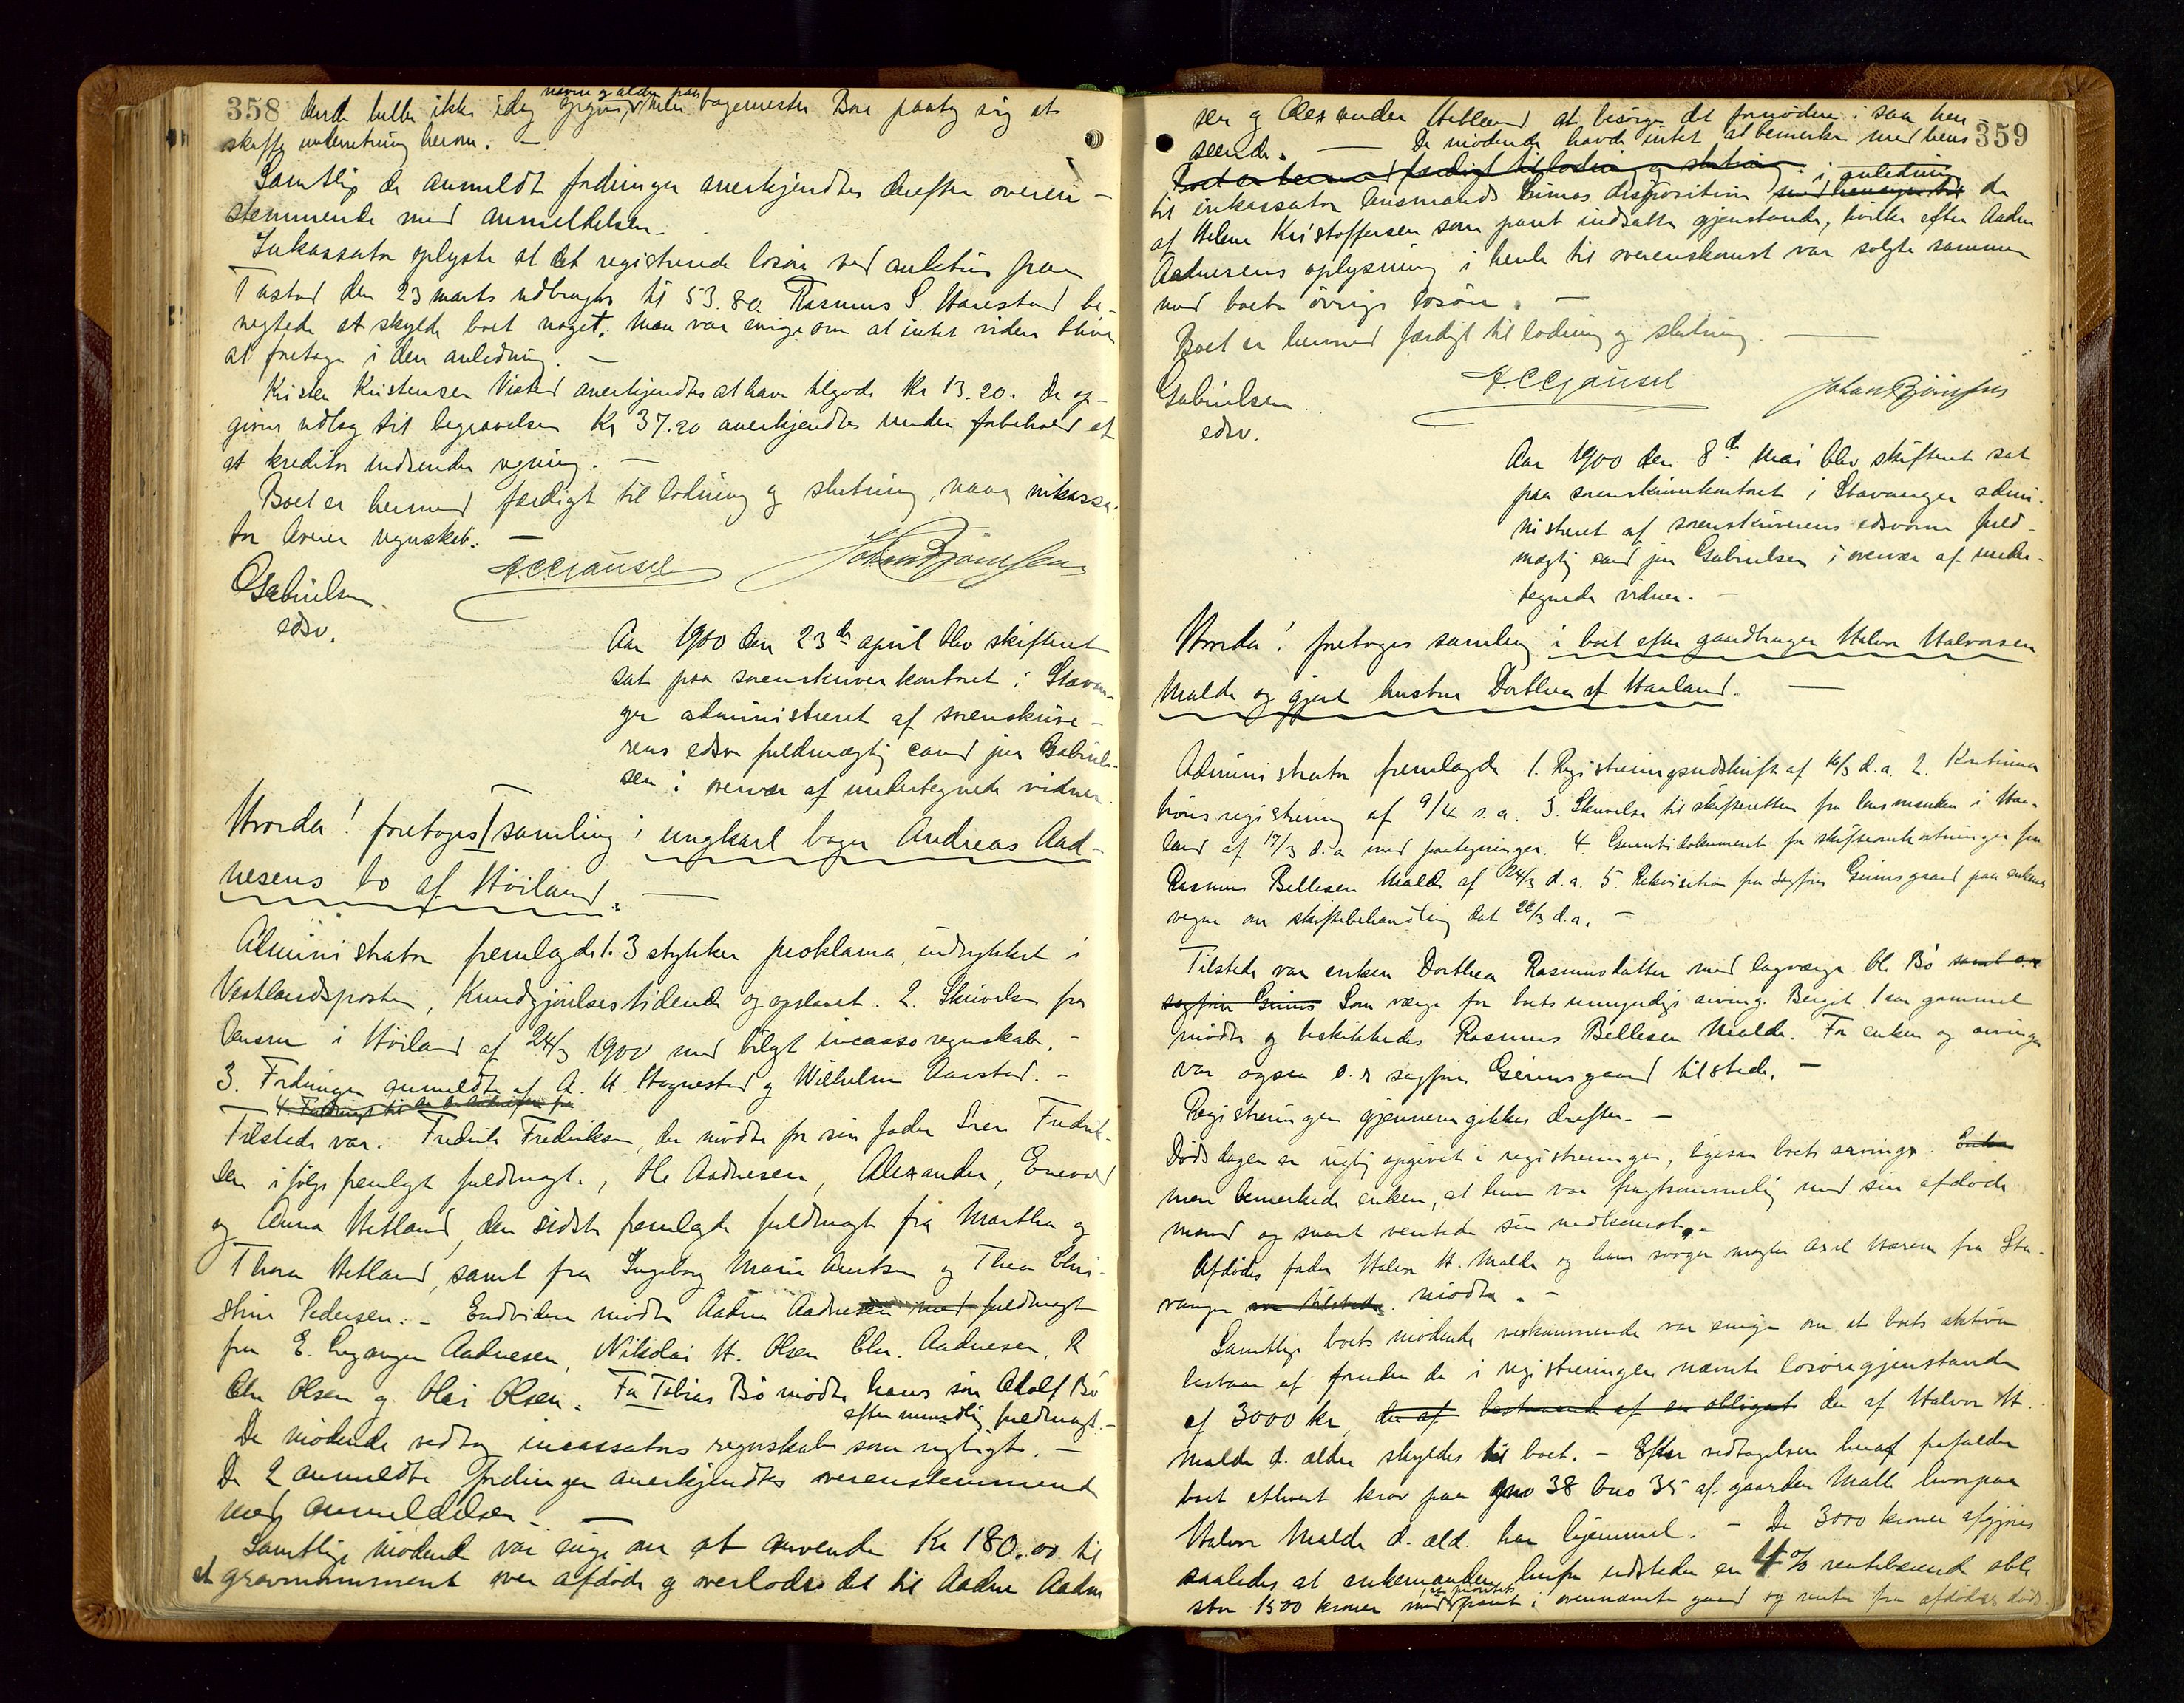 358 navne og alder paa
derde heller ikke idag opgives, men bagermester Boe paatog sig at
skaffe underretning herom. –
Samtlige de anmeldte fordringer anerkjendtes derefter overens-
stemmende med anmeldelsen.
Inkassator oplyste at det registrerede løsøre ved auktion paa
Tastad den 23 marts udbragtes til 53.80. Rasmus S. Harestad be-
negtede at skylde boet noget. Man var enige om at intet videre bliver
at foretage i den anledning. –
Kristen Kristensen Viste anerkjendtes at have tilgode Kr 13.20. De op-
givne udlæg til begravelsen Kr 37.20 anerkjendtes under forbehold af
at kreditor indsender regning. –
Boet er hermed færdigt til lodning og slutning, naar inkassa-
tor leverer regnskab. –
A.C. Gausel Johan Bjørnsen
Gabrielsen
edsv.
Aar 1900 den 23de april blev skifteret
sat paa sorenskriverkontoret i Stavan-
ger administreret af sorenskrive-
rens edsv fuldmægtig cand jur Gabriel-
sen i overvær af undertegnede vidner.
Hvorda! foretoges samling i ungkarl bager Andreas Aad-
nesens bo af Høiland. –
Administrator fremlagde 1. 3 stykker proklama, indrykket i
Vestlandsposten, Kundgjørelsestidende og opslaaet. 2. Skrivelse fra
lensm i Høiland af 24/3 1900 med bilagt incassoregnskab. –
3. Fordringer anmeldte af A. H. Hognestad og Wilhelm Aarstad. –
4. Fuldmagt til
Tilstede var. Fredrik Fredriksen, der mødte for sin fader Sven Fredrik-
sen ifølge fremlagt fuldmagt, Ole Aadnesen, Alexander, Enevald
og Anna Hetland, den sidste fremlagde fuldmagt fra Martha og
Thora Hetland, samt fra Ingeborg Marie Arntsen og Thea Chri-
stine Pedersen. – Endvidere mødte Aadne Aadnesen med fuldmagt
fra E. Aadnesen, Nikolai H. Olsen Chr. Aadnesen, R.
Chr Olsen og Olai Olsen. For Tobias Bø mødte hans søn Adolf Bø
efter mundtlig fuldmagt. –
De mødende vedtog incassators regnskab som rigtigt. –
De 2 anmeldte fordringer anerkjendtes overensstemmende
med anmeldelsen. –
Samtlige mødende var enige om at anvende Kr 180.00 til
et gravmonument over afdøde og overlodes det til Aadne Aadne
359
sen og Alexander Hetland at besørge det fornødne i saa hen-
seende. – De mødende havde intet at bemerke med hens
Boet er hermed færdigt til lodning og slutning. i anledning
til inkassator lensmands Grimes disposition med hensyn til de
af Helene Kristoffersen som pant indsatte gjenstande, hvilke efter Aadne
Aadnesens oplysning i henh til overenskomst var solgte sammen
med boets øvrige løsøre. –
Boet er hermed færdigt til lodning og slutning. –
A.C. Gausel Johan Bjørnsen
Gabrielsen
edsv.
Aar 1900 den 8de Mai blev skifteret sat
paa sorenskriverkontoret i Stavanger admi-
nistreret af sorenskriverens edsvorne fuld-
mægtig cand jur Gabrielsen i overvær af under-
tegnede vidner. –
Hvorda! foretoges samling i boet efter gaardbruger Halvor Halvorsen
Malde og gjenl hustru Dorthea af Haaland. –
Administrator fremlagde 1. Registreringsudskrift af 16/3 d.a. 2. Kontinua
tionsregistrering af 9/4 s.a. 3. Skrivelse til skifteretten fra lensmanden i Haa-
land af 17/3 d.a med paategninger. 4. Garantidokument for skifteomkostninger fra
Rasmus Bellesen Malde af 24/3 d.a. 5. Rekvisition fra sagfører Grimsgaard paa enkens
vegne om skiftebehandling dat 26/3 d.a. –
Tilstede var enken Dorthea Rasmusdatter med lagværge Ole Bø samt o.r
sagfører Grims Som værge for boets umyndige arving. Bergit 1 aar gammel
mødte og beskikkedes Rasmus Bellesen Malde. For enken og arvingen
var ogsaa o.r sagfører Grimsgaard tilstede. –
Registreringen gjennemgikkes derefter. –
Dødsdagen er rigtig opgivet i registreringen, ligesaa boets arvinge. Enken
men bemerkede enken, at hun var frugtsommelig med sin afdøde
mand og snart ventede sin nedkomst. –
Afdødes fader Halvor H. Malde og hans svoger megler Axel Warem fra Sta-
vanger var tilstede. mødte. –
Samtlige boets mødende vedkommende var enige om at boets aktiva
bestaar af foruden de i registreringen nævnte løsøregjenstande
af 3000 kr, der af bestaaende af en obligat der af Halvor H.
Malde d. ældre skyldes til boet. – Efter vedtagelsen heraf frafalder
boet ethvert krav paa gno 38 bno 35 af gaarden Malle hvorpaa
Halvor Malde d. æld. har hjemmel. – De 3000 kroner afgjøres
saaledes at enkemanden herfor udsteder en 4% rentebærende obl.
stor 1500 kroner med pant i ovennævnte gaard og renter fra afdødes døds-